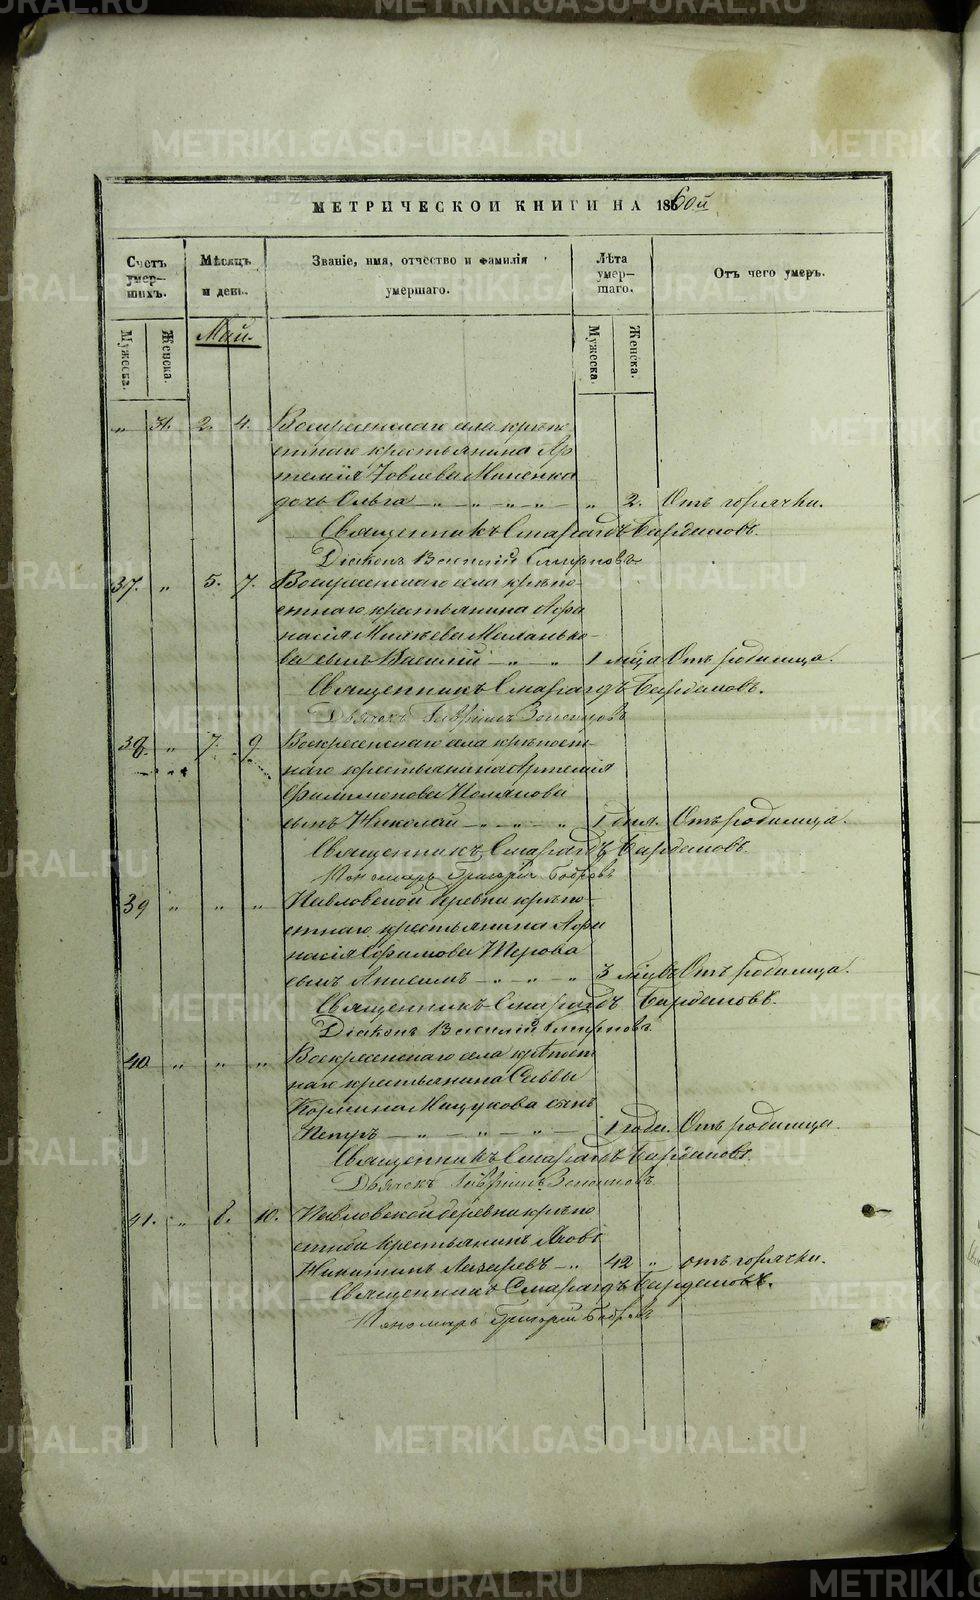 METRIKI.GASO-URAL.RU
МЕТРИЧЕСКОЙ КНИГИ НА 1860й
Счетъ умер-шихъ.
Мѣсяцъ и день.
Званіе, имя, отчество и фамилія умершаго.
Лѣта умер-шаго.
Отъ чего умеръ.
Мужеска.
Женска.
Май.
Мужеска.
Женска.
„ 31. 2. 4. Воскресенскаго села крѣпо-
стнаго крестьянина Ар
темія Іовлева
дочь Ольга — „ — „ — „ — „ „ 2. Отъ горячки.
Священникъ Смарагдъ Бардиновъ.
Діаконъ Василій Смирновъ
37. „ 5. 7. Воскресенскаго села крѣпо-
стнаго крестьянина Афа
насія
ва сынъ Василій — „ — „ 1 мца Отъ родимца.
Священникъ Смарагдъ Бардиновъ.
Дьячекъ Гавріилъ
38. „ 7. 9. Воскресенскаго села крѣпост-
наго крестьянина Артемія
Филимонова
сынъ Николай — „ — „ — „ 1 дня. Отъ родимца.
Священникъ Смарагдъ Бардиновъ.
Пономарь Григорій Бобровъ
39 „ „ „ Павловской деревни крѣпо-
стнаго крестьянина Афа
насія Ефимова
сынъ — „ — „ — „ 3 мцвъ Отъ родимца.
Священникъ Смарагдъ Бардиновъ.
Діаконъ Василій Смирновъ
40 „ „ „ Воскресенскаго села крѣпост
наго крестьянина Саввы
сынъ
Петръ — „ — „ — „ — 1 года. Отъ родимца
Священникъ Смарагдъ Бардиновъ.
Дьячекъ Гавріилъ
41. „ 8. 10. Павловской деревни крѣпо
стной крестьянинъ Яковъ
Никитинъ Лазаревъ — „ 42 „ отъ горячки.
Священникъ Смарагдъ Бардиновъ.
Пономарь Григорій Бобровъ